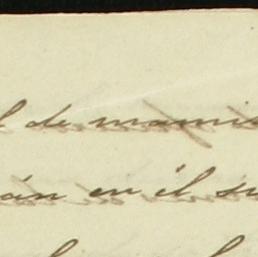 l de mamis
án en él su